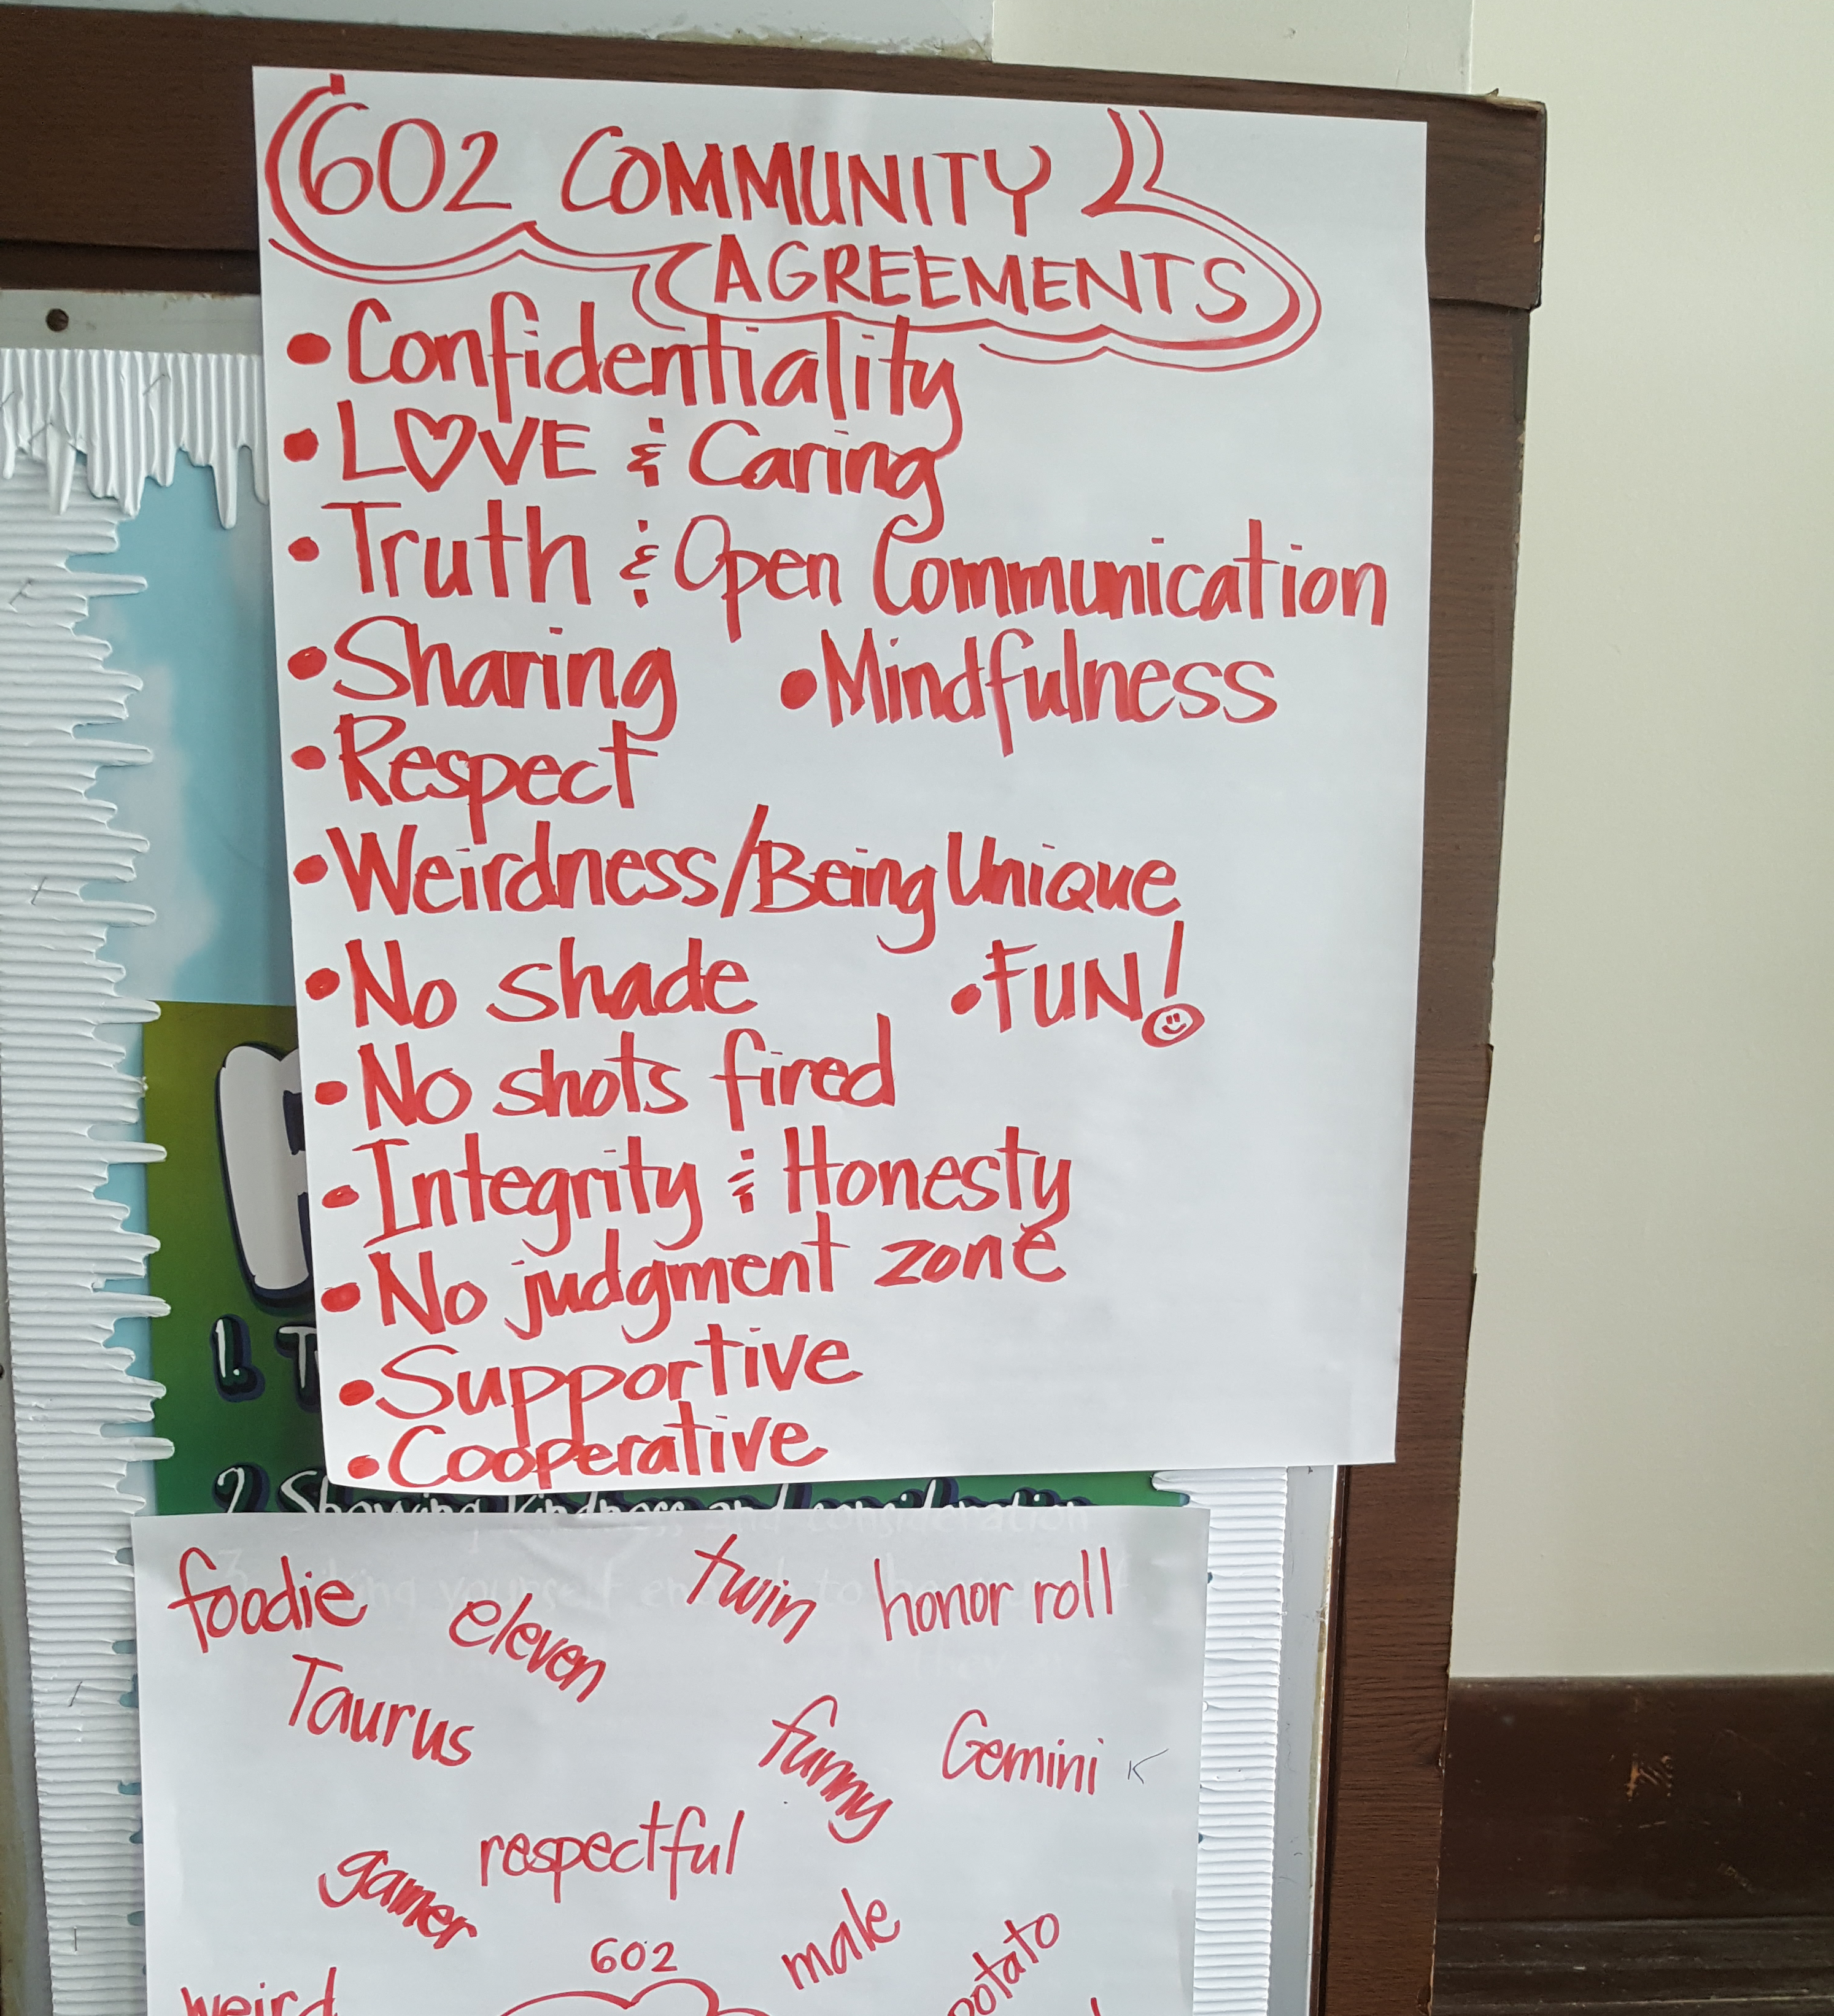 602 COMMUNITY
AGREEMENTS
• Confidentiality
• LOVE & Caring
• Truth & Open Communication
• Sharing • Mindfulness
• Respect
• Weirdness/Being Unique
• No shade • FUN!
• No shots fired
• Integrity & Honesty
• No judgment zone
• Supportive
• Cooperative
1.
2. Showing kindness and consideration
foodie
eleven
twin
honor roll
Taurus
funny
Gemini
respectful
gamer
male
602
potato
weird